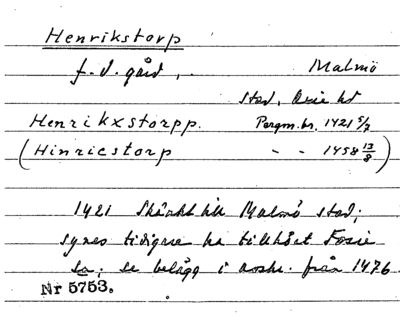 Henrikstorp
f.d. gård, Malmö
stad, Oxie hd
Henrikxstorpp. Pergm.br. 1421 5/7
(Hinricstorp - - 1458 13/8)
1421 Skänkt till Malmö stad;
synes tidigare ha tillhört Fosie
sn; se belägg i avskr. från 1476.
Nr 5753.